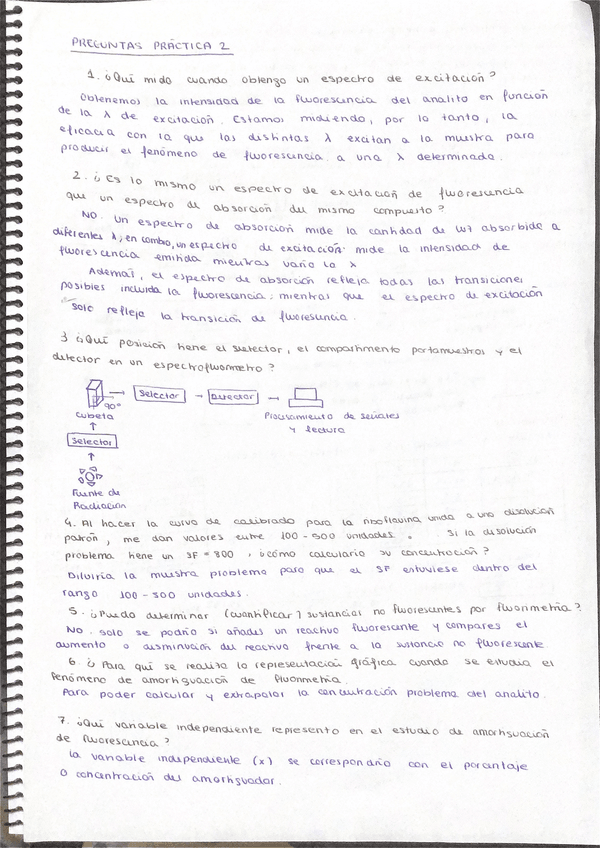 PREGUNTAS PRÁCTICA 2
1. ¿Qué mido cuando obtengo un espectro de excitación?
Obtenemos la intensidad de la fluorescencia del analito en función
de la λ de excitación. Estamos midiendo, por lo tanto, la
eficacia con la que las distintas λ excitan a la muestra para
producir el fenómeno de fluorescencia a una λ determinada.
2. ¿Es lo mismo un espectro de excitación de fluorescencia
que un espectro de absorción del mismo compuesto?
NO. Un espectro de absorción mide la cantidad de luz absorbida a
diferentes λ; en cambio, un espectro de excitación mide la intensidad de
fluorescencia emitida mientras varío la λ
Además, el espectro de absorción refleja todas las transiciones
posibles incluida la fluorescencia; mientras que el espectro de excitación
solo refleja la transición de fluorescencia.
3 ¿Qué posición tiene el selector, el compartimento portamuestras y el
detector en un espectrofluorímetro?
90°
Cubeta
Selector
Detector
Procesamiento de señales
y lectura
Selector
Fuente de
Radiación
4. Al hacer la curva de calibrado para la riboflavina unida a una disolución
patrón, me dan valores entre 100-500 unidades. Si la disolución
problema tiene un SF = 800, ¿cómo calcularía su concentración?
Diluiría la muestra problema para que el SF estuviese dentro del
rango 100-500 unidades.
5. ¿Puedo determinar (cuantificar) sustancias no fluorescentes por fluorimetría?
NO. Solo se podría si añades un reactivo fluorescente y compares el
aumento o disminución del reactivo frente a la sustancia no fluorescente.
6. ¿Para qué se realiza la representación gráfica cuando se estudia el
fenómeno de amortiguación de fluorimetría.
Para poder calcular y extrapolar la concentración problema del analito.
7. ¿Qué variable independiente represento en el estudio de amortiguación
de fluorescencia?
La variable independiente (x) se correspondría con el porcentaje
o concentración del amortiguador.